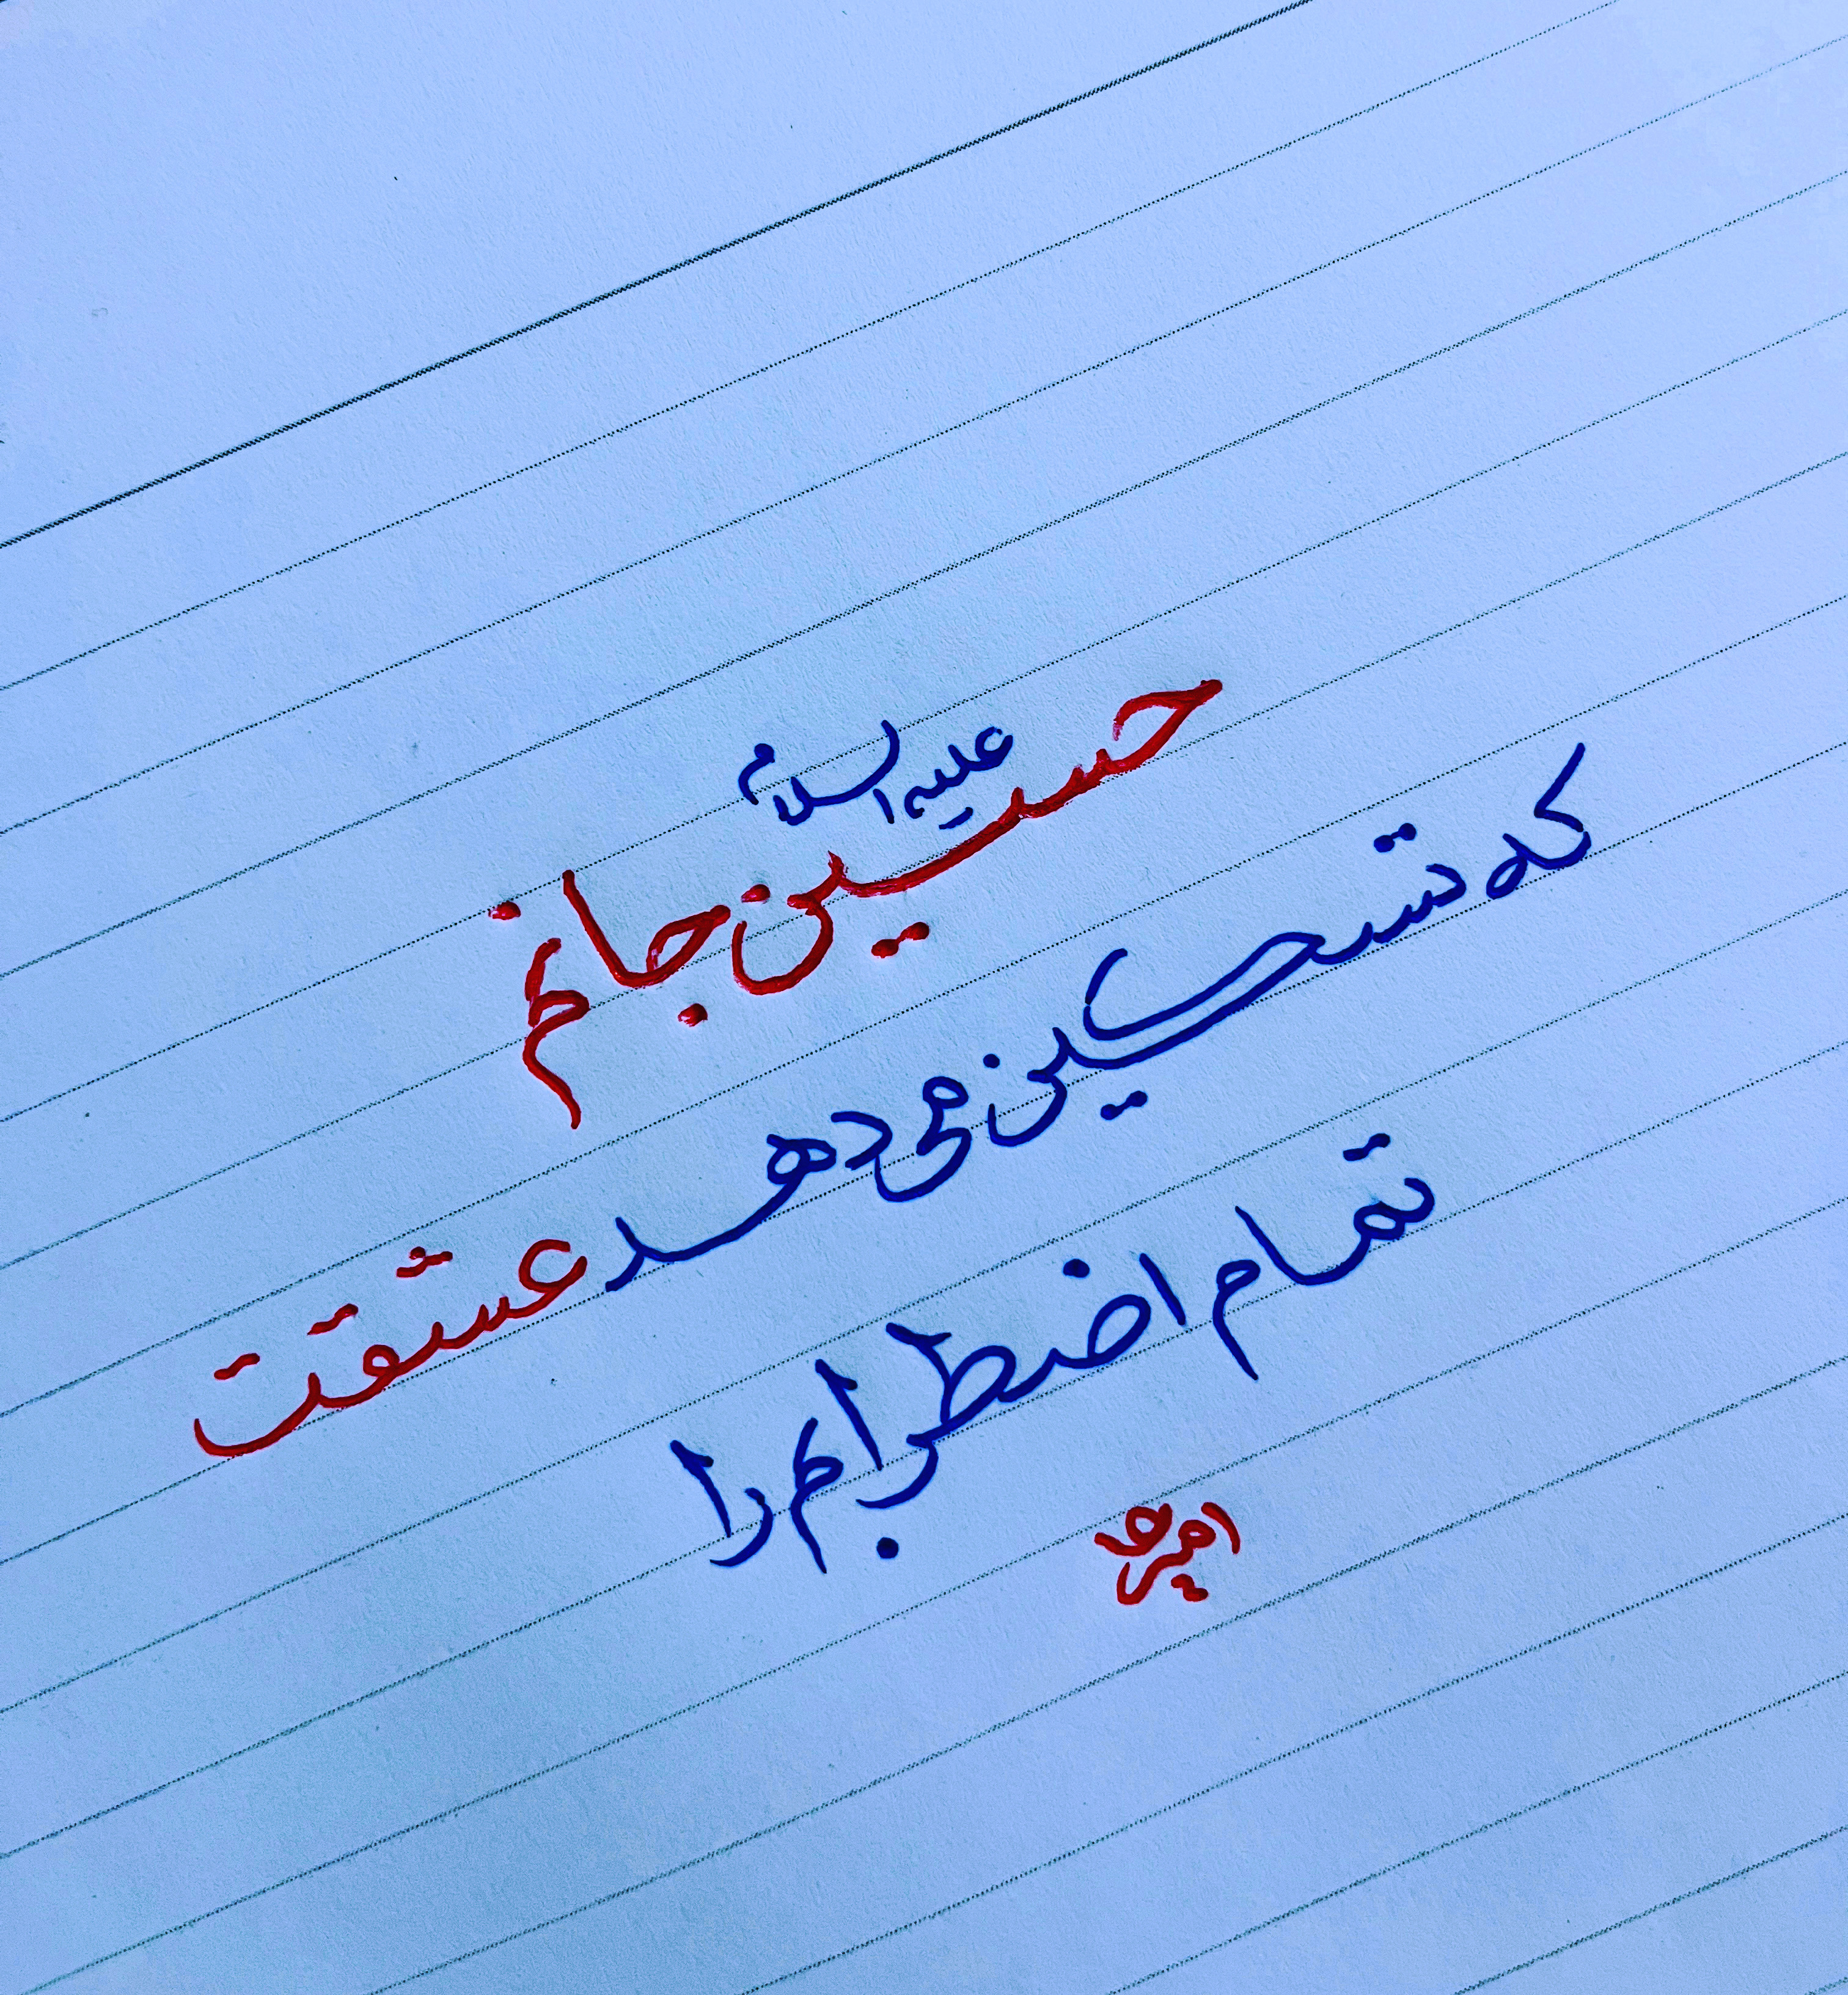 علیه السلام
حسین جانم
که تسکین می دهد عشقت
تمام اضطرابم را